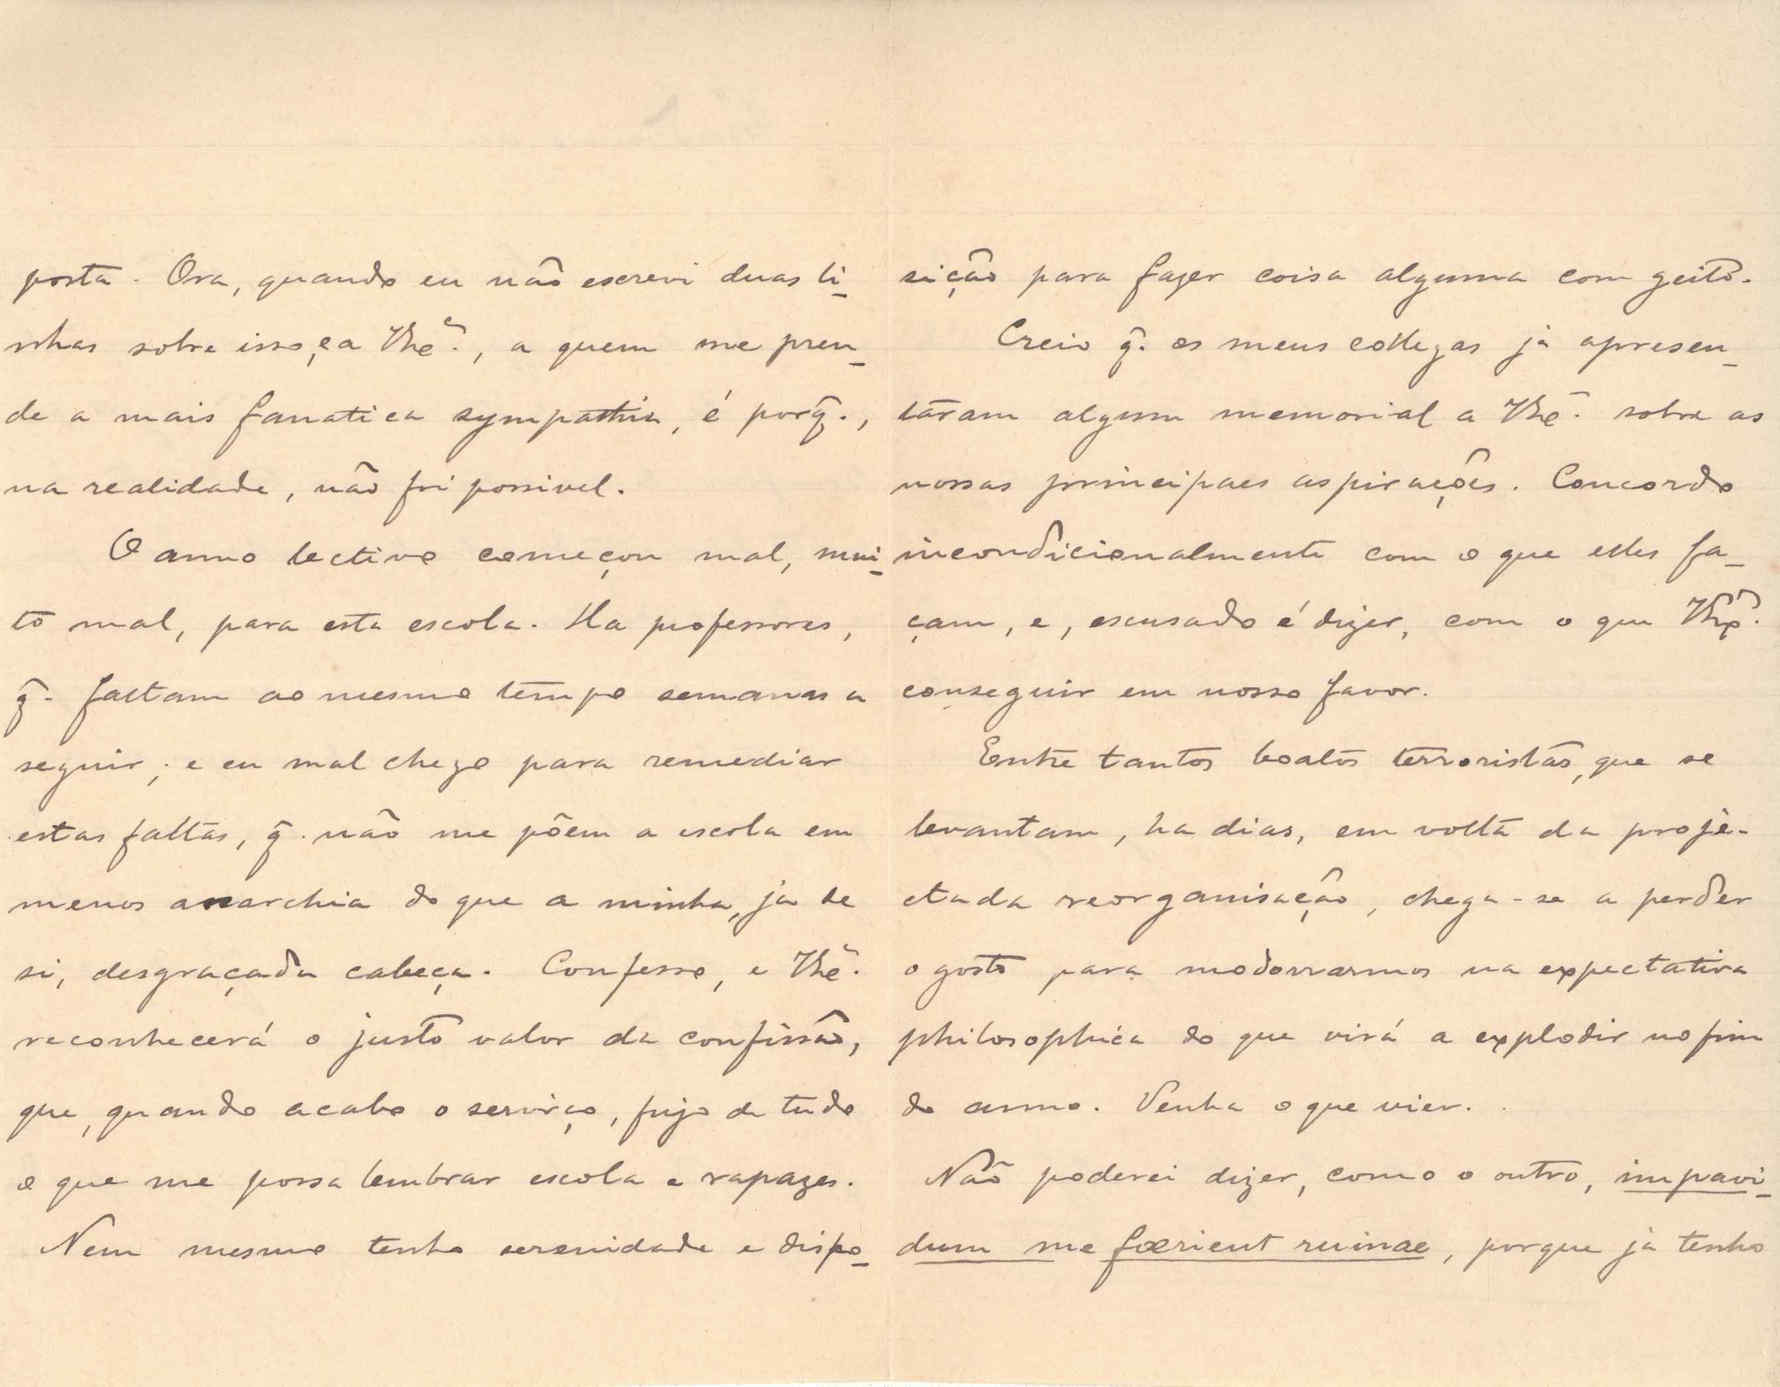 posta. Ora, quando eu não escrevi duas li-
nhas sobre isso, e a Vhẽ., a quem me pren-
de a mais fanatica sympathia, é porq̃.,
na realidade, não foi possivel.
O anno lectivo começou mal, mui-
to mal, para esta escola. Ha professores,
q̃. faltam ao mesmo tempo semanas a
seguir; e eu mal chego para remediar
estas faltas, q̃. não me põem a escola em
menos anarchia do que a minha, ja de
si, desgraçada cabeça. Confesso, e Vhẽ.
reconhecerá o justo valor da confissão,
que, quando acabo o serviço, fujo de tudo
o que me possa lembrar escola e rapazes.
Nem mesmo tenho serenidade e dispo-
sição para fazer coisa alguma com geito.
Creio q̃. os meus collegas já apresen-
taram algum memorial a Vhẽ. sobre as
nossas principaes aspirações. Concordo
incondicionalmente com o que elles fa-
çam, e, escusado é dizer, com o que Vhẽ.
conseguir em nosso favor.
Entre tantos boatos terroristas, que se
levantam, ha dias, em volta da proje-
ctada reorganisação, chega-se a perder
o gosto para modorrarmos na expectativa
philosophica do que virá a explodir no fim
do anno. Venha o que vier.
Não poderei dizer, como o outro, impavi-
dum me fœrient ruinae, porque já tenho